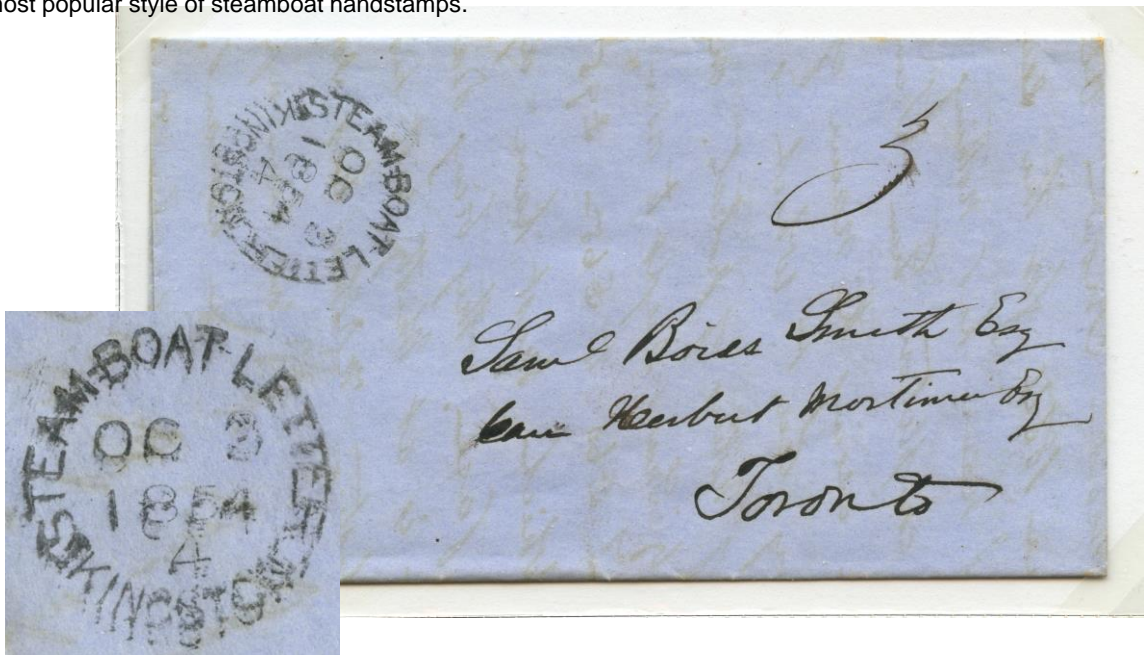 most popular style of steamboat handstamps.
STEAM-BOAT-LETTER KINGSTON
OC 3
1854
4
3
Saml Smith Esq
Care Herbert Mortimer Esq
Toronto
STEAM-BOAT-LETTER KINGSTON
OC 3
1854
4